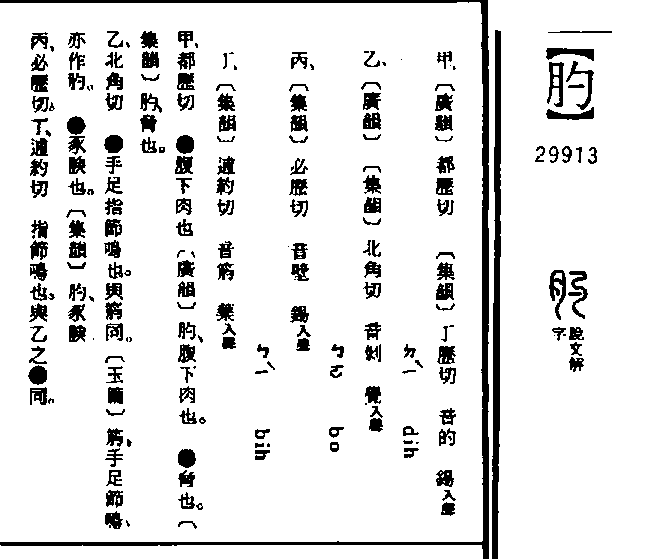 【肑】
29913
說文解
字
甲、〔廣韻〕都歷切 〔集韻〕丁歷切 音的 錫入聲
ㄉㄧˋ dih
乙、〔廣韻〕〔集韻〕北角切 音剝 覺入聲
ㄅㄛ bo
丙、〔集韻〕必歷切 音壁 錫入聲
ㄅㄧˋ bih
丁、〔集韻〕逋約切 音𥭖 藥入聲
甲、都歷切 ●腹下肉也〔廣韻〕肑、腹下肉也。●脅也。〔
集韻〕肑、脅也。
乙、北角切 ●手足指節鳴也。與筋同。〔玉篇〕筋、手足節鳴、
亦作肑。●豕腴也。〔集韻〕肑、豕腴
丙、必歷切。丁、逋約切 指節鳴也。與乙之●同。